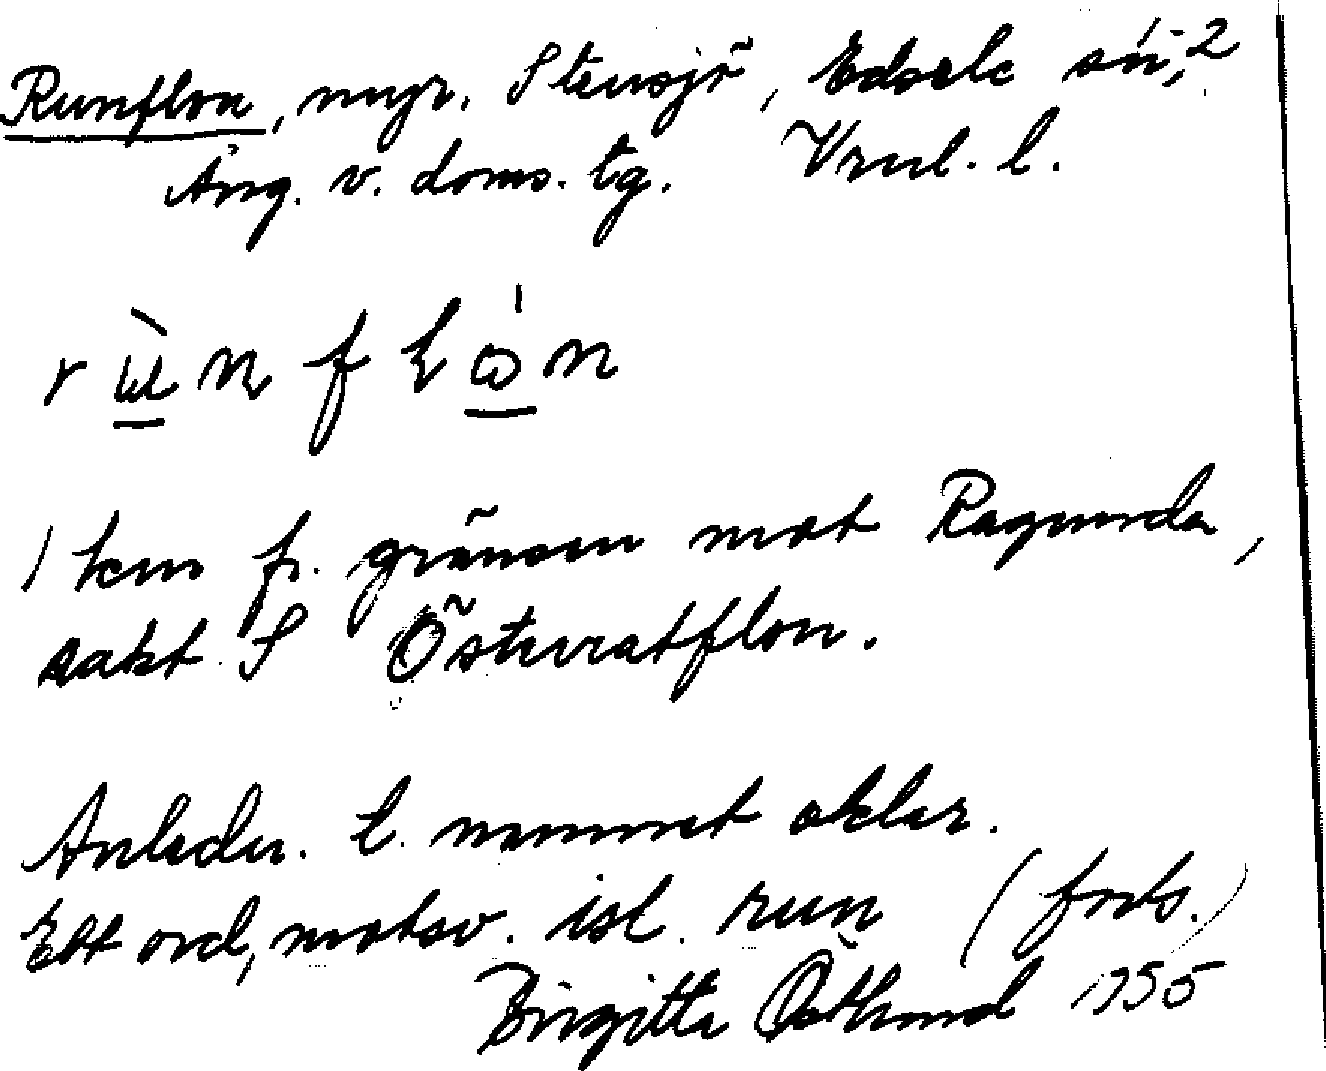 Runflon, myr. Stensjö, Edsele sn, 2
Ång. v. doms. tg. Vrul. l.
rùnflón
1 km fr. gränsen mot Ragunda,
rakt S Östuratflon.
Anledn. t. namnet oklar.
Ett ord, motsv. isl. run (forts.)
Birgitta Östlund 1955